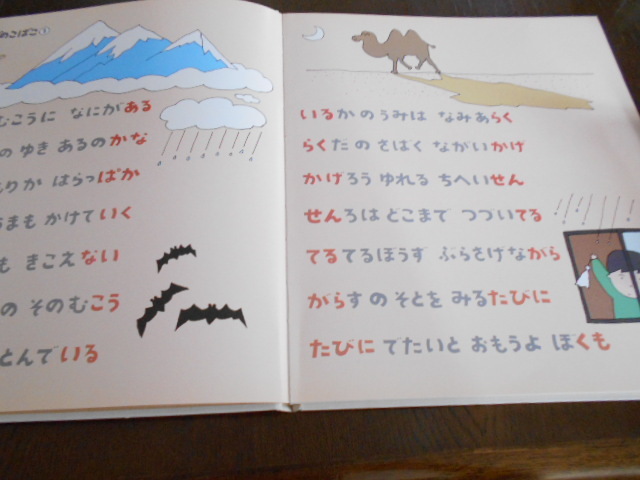 のこばこ①
むこうに なにがある
の ゆき あるのかな
りか はらっぱか
まも かけていく
も きこえない
の そのむこう
とんでいる
いるかのうみは なみあらく
らくだの さばく ながいかげ
かげろう ゆれる ちへいせん
せんろは どこまで つづいてる
てるてるぼうず ぶらさげながら
がらすの そとを みるたびに
たびに でたいと おもうよ ぼくも